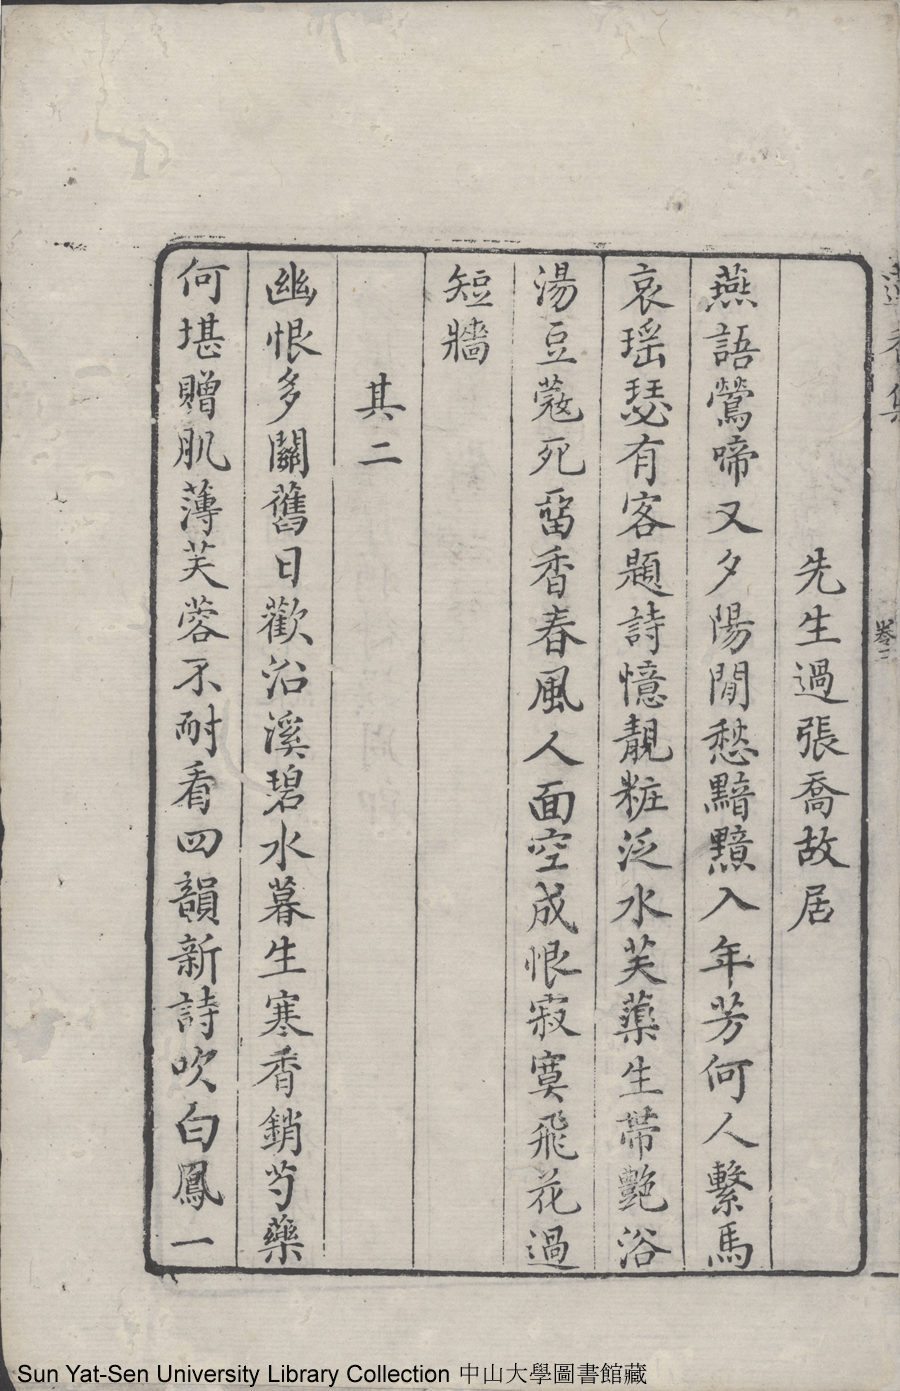 蓮香集
卷三
先生過張喬故居
燕語鶯啼又夕陽閒愁黯黮入年芳何人繫馬
哀瑶瑟有客題詩憶靚粧泛水芙蕖生帶艷浴
湯豆蔻死畱香春風人面空成恨寂寞飛花過
短牆
其二
幽恨多關舊日歡沿溪碧水暮生寒香銷芍藥
何堪贈肌薄芙蓉不耐看四韻新詩吹白鳳一
Sun Yat-Sen University Library Collection 中山大學圖書館藏